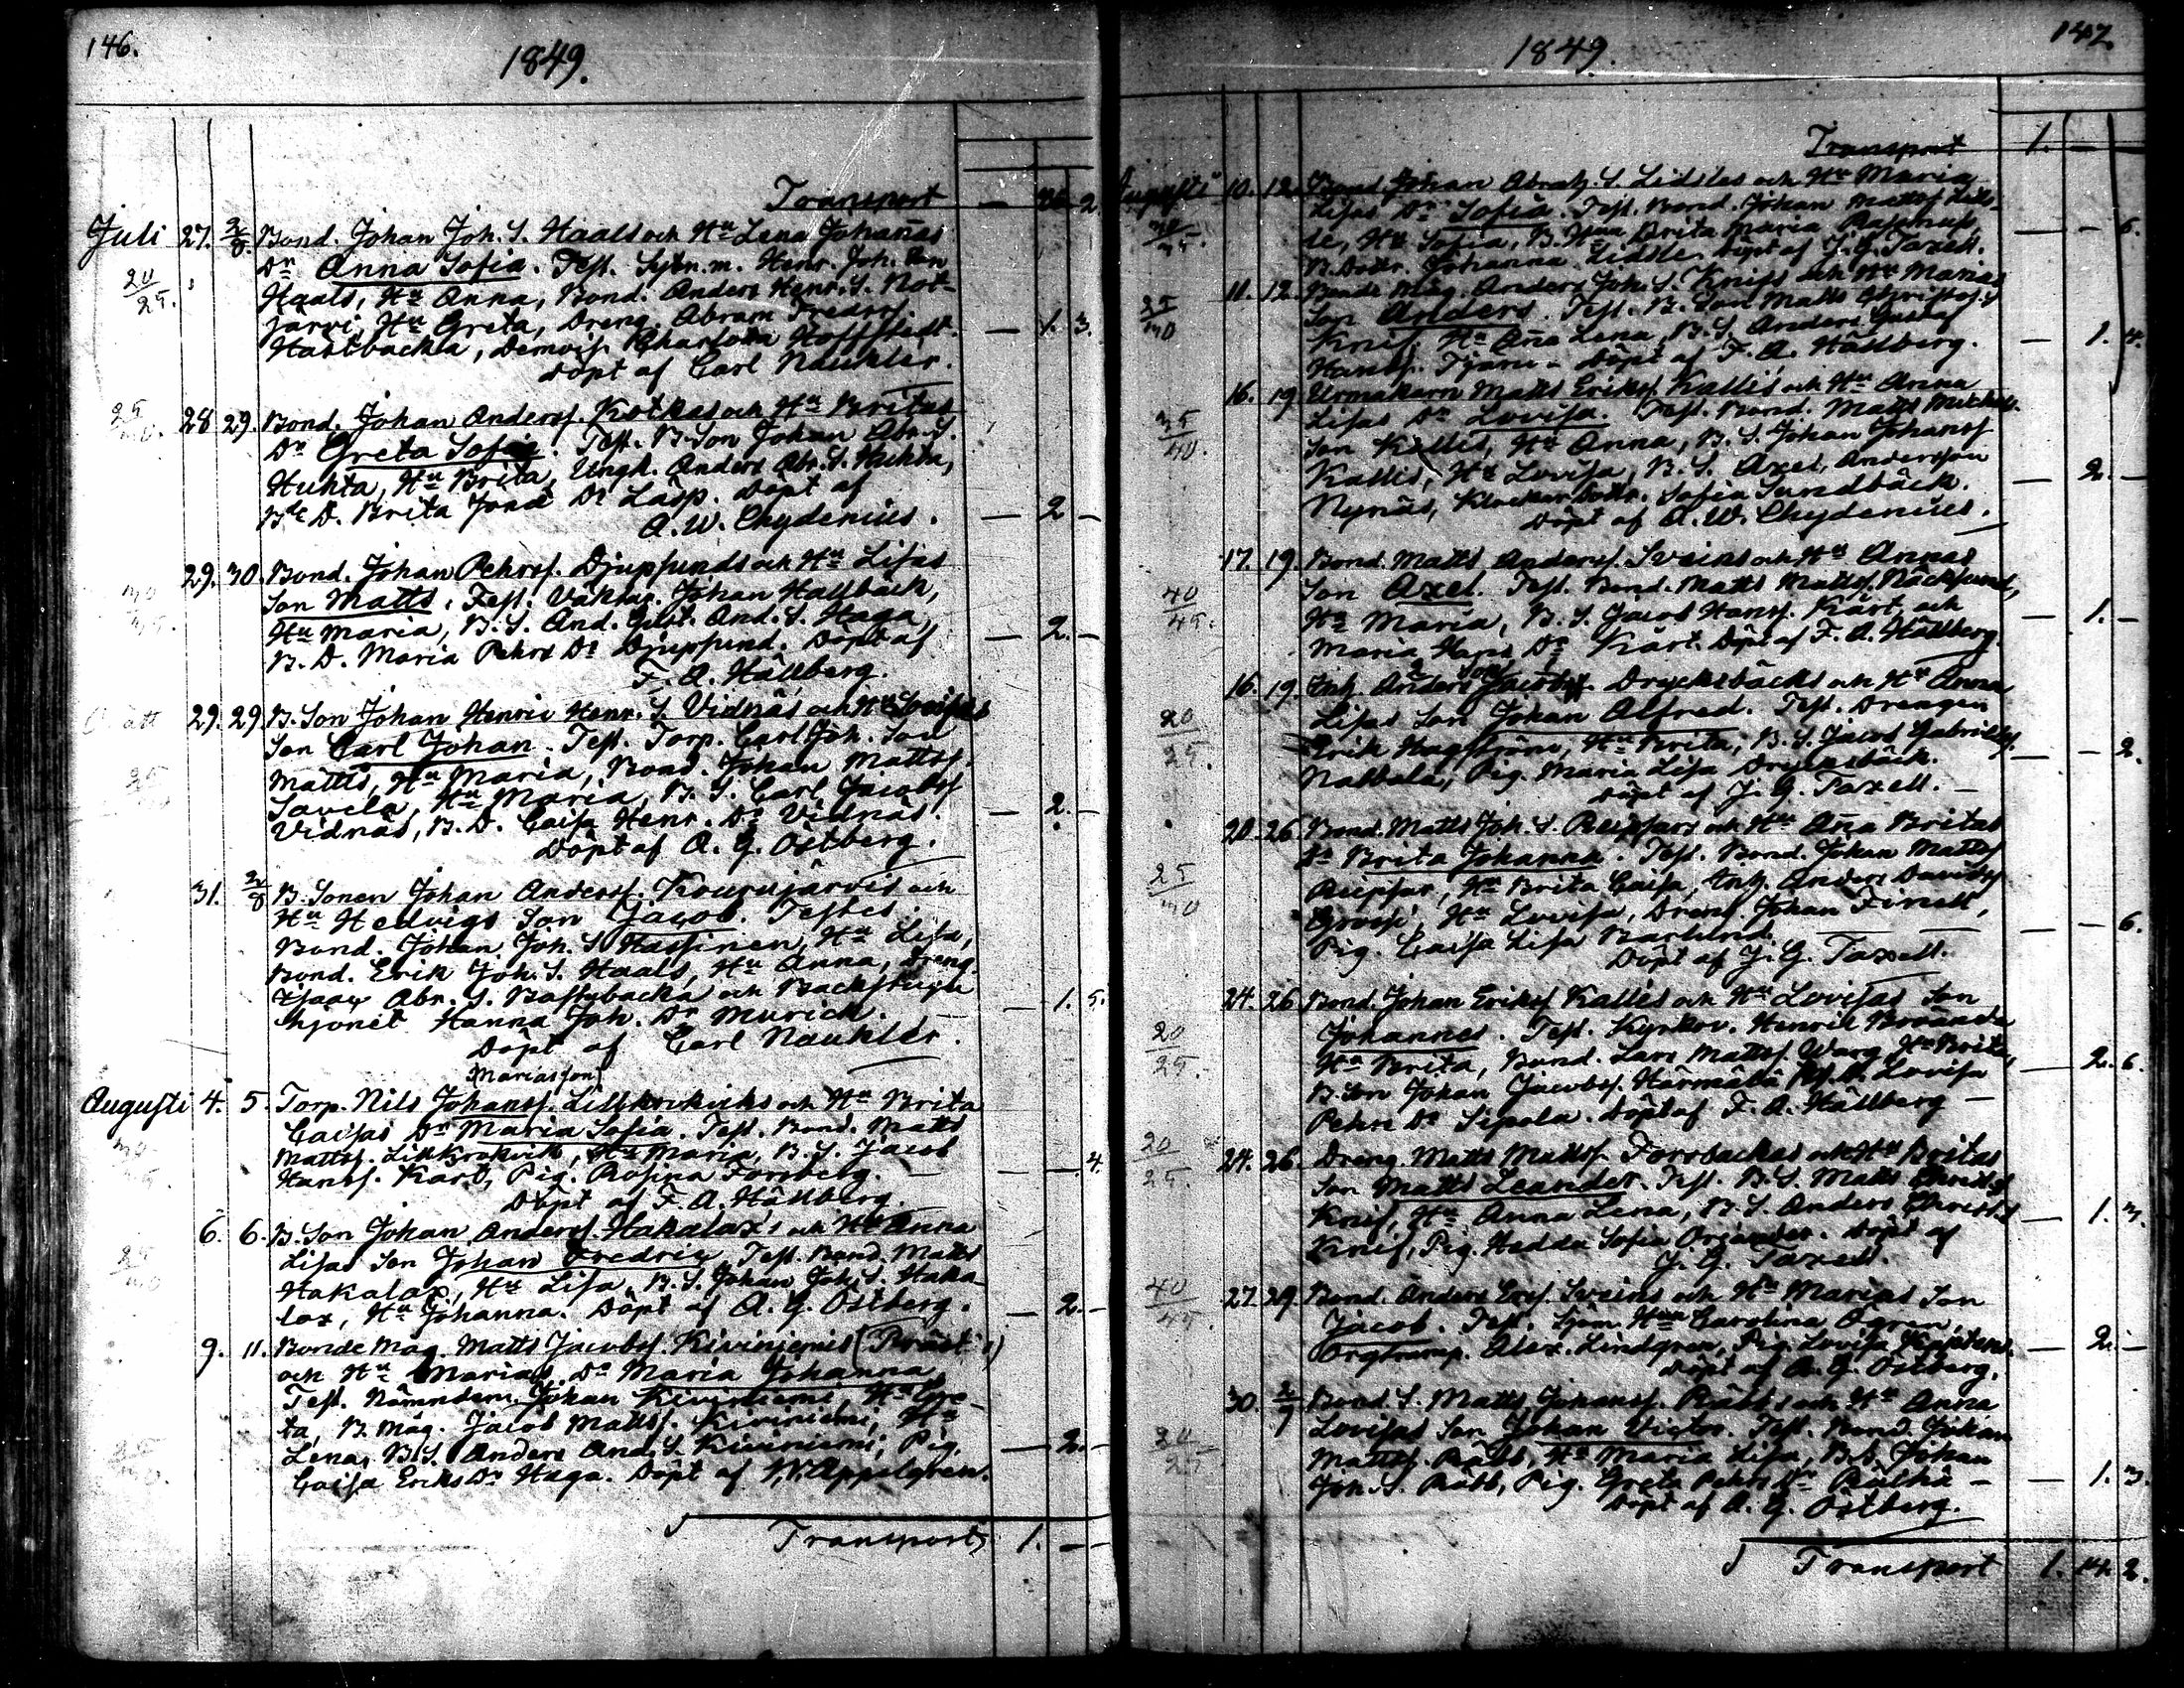 146.
1849.
Transport — 2
Juli 27. 2/8. Bond. Johan Joh. S. Haals och Hu Lena Johanas
20/25. Dr Anna Sofia. Test. Sytn.m. Henr. Joh. Son
Haals, Hu Anna, Bond. Anders Henr. S. Rot-
järvi, Hu Greta, Dreng Abram Fredrss.
Hastbacka, Demois. Charlotta Hoffstedt. — 1. 3.
Döpt af Carl Nauklér.
25/30. 28 29. Bond. Johan Anderss. Kotkas och Hu Britas
Dr Greta Sofia. Test. B. Son Johan Abr. S.
Huhta, Hu Brita, Ungk. Anders Abr. S. Huhta,
Bde D. Brita Jons Dr Lasp. Döpt af
A. W. Chydenius. — 2 —
29. 30. Bond. Johan Pehrss. Djupsunds och Hu Lisas
30/35. Son Matts. Test. Vaktm. Johan Hallbäck,
Hu Maria, B. S. And. Gust. And. S. Haga, — 2. —
B. D. Maria Pehrs Dr Djupsund. Döpt af
F. A. Hällberg.
29. 29. B. Son Johan Henric Henr. S. Vidnäs och Hu Lovisas
Son Carl Johan. Test. Torp. Carl Joh. Son
25/30 Mattis, Hu Maria, Bond. Johan Mattss.
Savela, Hu Maria, B. S. Carl Jacobss
Vidnäs, B. D. Caisa Henr. Dr Vidnäs. — 2. —
Döpt af A. G. Östberg.
31. 2/8 B. Sonen Johan Anderss. Kourujärvis och
Hu Hedvigs Son Jacob. Testes:
Bond. Johan Joh. S. Hassinen, Hu Lisa,
Bond. Erik Joh. S. Haals, Hu Anna, Dreng.
Isaac Abr. S. Bastubacka och Backstugu
hjonet Hanna Joh. Dr Murick. — 1. 5.
Döpt af Carl Nauklér.
Mariasson
Augusti 4. 5. Torp. Nils Johanss. Lillkrokviks och Hu Brita
30/35 Caisas Dr Maria Sofia. Test. Bond. Matts
Mattss. Lillkrokvik, Hu Maria, B. S. Jacob
Hanss. Kart, Pig. Rosina Forsberg. — — 4.
Döpt af F. A. Hällberg.
6. 6. B. Son Johan Anderss. Hakalax's och Hu Anna
25/30 Lisas Son Johan Fredric. Test. Bond. Matts
Hakalax, Hu Lisa, B. S. Johan Joh. S. Haka-
lax, Hu Johanna. Döpt af A. G. Östberg. — 2. —
9. 11. Bonde Måg. Matts Jacobss. Kiviniemis (Präst's)
och Hu Marias Dr Maria Johanna
Test. Nämndem. Johan Kiviniemi, Hu Gre-
ta, B. Måg. Jacob Mattss. Kiviniemi, Hu
25/30. Lena, B. S. Anders And. S. Kiviniemi, Pig. — 2. —
Caisa Eriks Dr Haga. Döpt af W. Appelgren.
Transport 1. — —
147.
1849.
Transport 1. — —
Augusti 10. 12. Bond. Johan Abrah. S. Lidsles och Hu Maria
30/35. Lisas Dr Sofia. Test. Bond. Johan Matts Lids-
le, Hu Sofia, B. Hua Brita Maria Rasmus, — — 6.
B. Dottr. Johanna Lidsle. Döpt af J. G. Taxell.
11. 12. Bonde Måg. Anders Joh. S. Knifs och Hu Marias
25/30 Son Anders. Test. B. Son Matts Christoss
Knif, Hu Ana Lena, B. S. Anders Gustaf
Hanss. Tjäru - Döpt af F. A. Hällberg. — 1. 4.
16. 19. Urmakarn Matts Erikss. Kallis och Hu Anna
35/40. Lisas Dr Lovisa. Test. Bond. Matts Michels
Son Kallis, Hu Anna, B. S. Johan Johanss
Kallis, Hu Lovisa, B. S. Axel Andersson
Nynäs, Klockar Dottr. Sofia Sundbäck. — 2. —
Döpt af A. W. Chydenius.
17. 19. Bond. Matts Anderss. Sveins och Hu Annas
40/45. Son Axel. Test. Bond. Matts Mattss. Näcksund,
Hu Maria, B. S. Jacob Hanss. Kart, och — 1. —
Maria Hans Dr Kart. Döpt af F. A. Hällberg.
16. 19. Inh. Anders Jacobss. Drycksbäcks och Hu Anna
20/25. Lisas Son Johan Alfred. Test. Drengen
Erik Hagström, Hu Brita, B. S. Jacob Gabrielss.
Nabbala, Pig. Maria Lisa Drycksbäck. — — 2.
Döpt af J. G. Taxell.
20. 26. Bond. Matts Joh. S. Reipsars och Hu Ana Britas
25/30 Dr Brita Johanna. Test. Bond. Johan Mattss
Reipsar, Hu Brita Caisa, Inh. Anders Davidss
Hu Lovisa, Dreng. Johan Finell,
Pig. Caisa Lisa Barklund. — — 6.
Döpt af J. G. Taxell.
24. 26 Bond. Johan Erikss Kallis och Hu Lovisas Son
20/25. Johannes. Test. Kyrkov. Henrik Brännde
Hu Brita, Bond. Lars Mattss. Warg, Hu Brita, — 2. 6.
B. Son Johan Jacobss. Härmälä, B. D. Lovisa
Pehrs Dr Sipola. Döpt af F. A. Hällberg —
20/25. 24. 26. Dreng Matts Mattss. Forsbackas och Hu Britas
Son Matts Leander. Test. B. S. Matts Christss
Knif, Hu Anna Lena, B. S. Anders Christ. S — 1. 3.
Knif, Pig. Hedda Sofia. Döpt af
J. G. Taxell.
40/45. 27. 29. Bond. Anders Ers. Sveins och Hu Marias Son
Jacob. Test. Sjöm. Hua Carolina Ögren,
Orgtramp. Alex. Lindgren, Pig. Lovisa — 2. —
Döpt af A. G. Östberg.
30. 2/9 Bond. S. Matts Johanss. Räbbs och Hu Anna
20/25 Lovisas Son Johan Victor. Test. Bond. Johan
Mattss. Räbb, Hu Maria Lisa, B. S. Johan
Joh. S. Räbb, Pig. Greta Pehrs Dr — 1. 3.
Döpt af A. G. Östberg.
Transport 1. 14. 2.